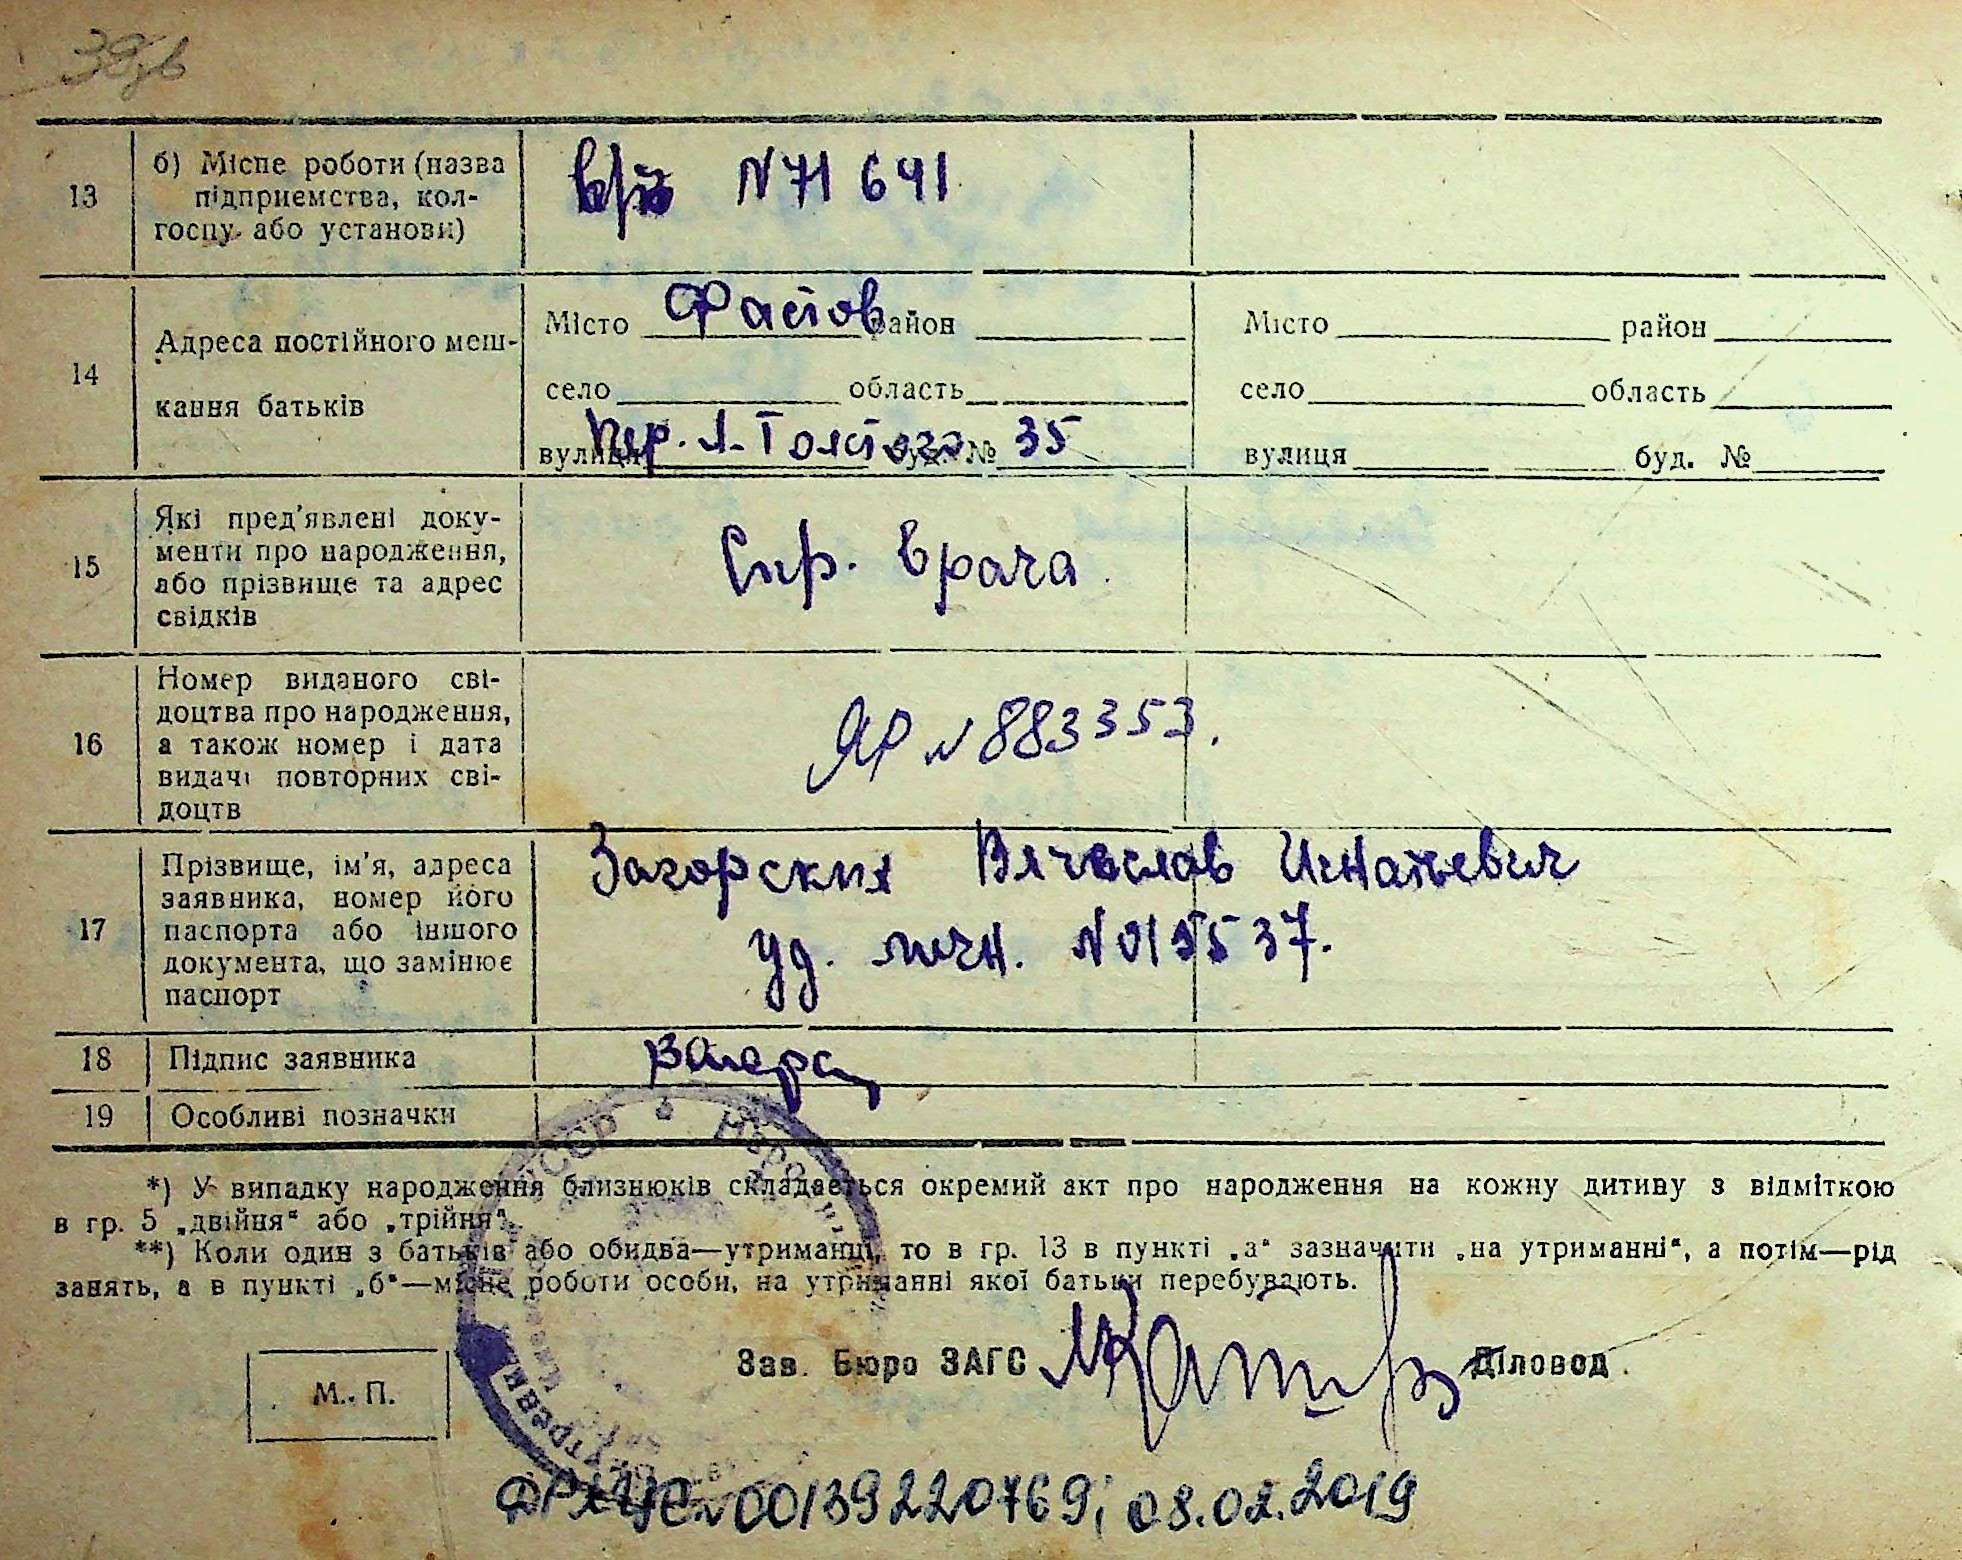 38зв
13
б) Місце роботи (назва
підприємства, кол-
госпу або установи)
в/ч N 71 641
14
Адреса постійного меш-
кання батьків
Місто Фастов район
село область
вулиця пер. Л-Толстого буд. № 35
Місто район
село область
вулиця буд. №
15
Які пред'явлені доку-
менти про народження,
або прізвище та адрес
свідків
Спр. врача
16
Номер виданого сві-
доцтва про народження,
а також номер і дата
видачі повторних сві-
доцтв
ЯР N 883353.
17
Прізвище, ім'я, адреса
заявника, номер його
паспорта або іншого
документа, що замінює
паспорт
Загорских Вячеслав Игнатьевич
уд. личн. N 015537.
18
Підпис заявника
19
Особливі позначки
*) У випадку народження близнюків складається окремий акт про народження на кожну дитину з відміткою
в гр. 5 „двійня“ або „трійня“.
**) Коли один з батьків або обидва—утриманці, то в гр. 13 в пункті „а“ зазначити „на утриманні“, а потім—рід
занять, а в пункті „б“—місце роботи особи, на утриманні якої батьки перебувають.
УССР
Зав. Бюро ЗАГС Діловод
М. П.
ДРАЦС N 00139220769; 08.02.2019